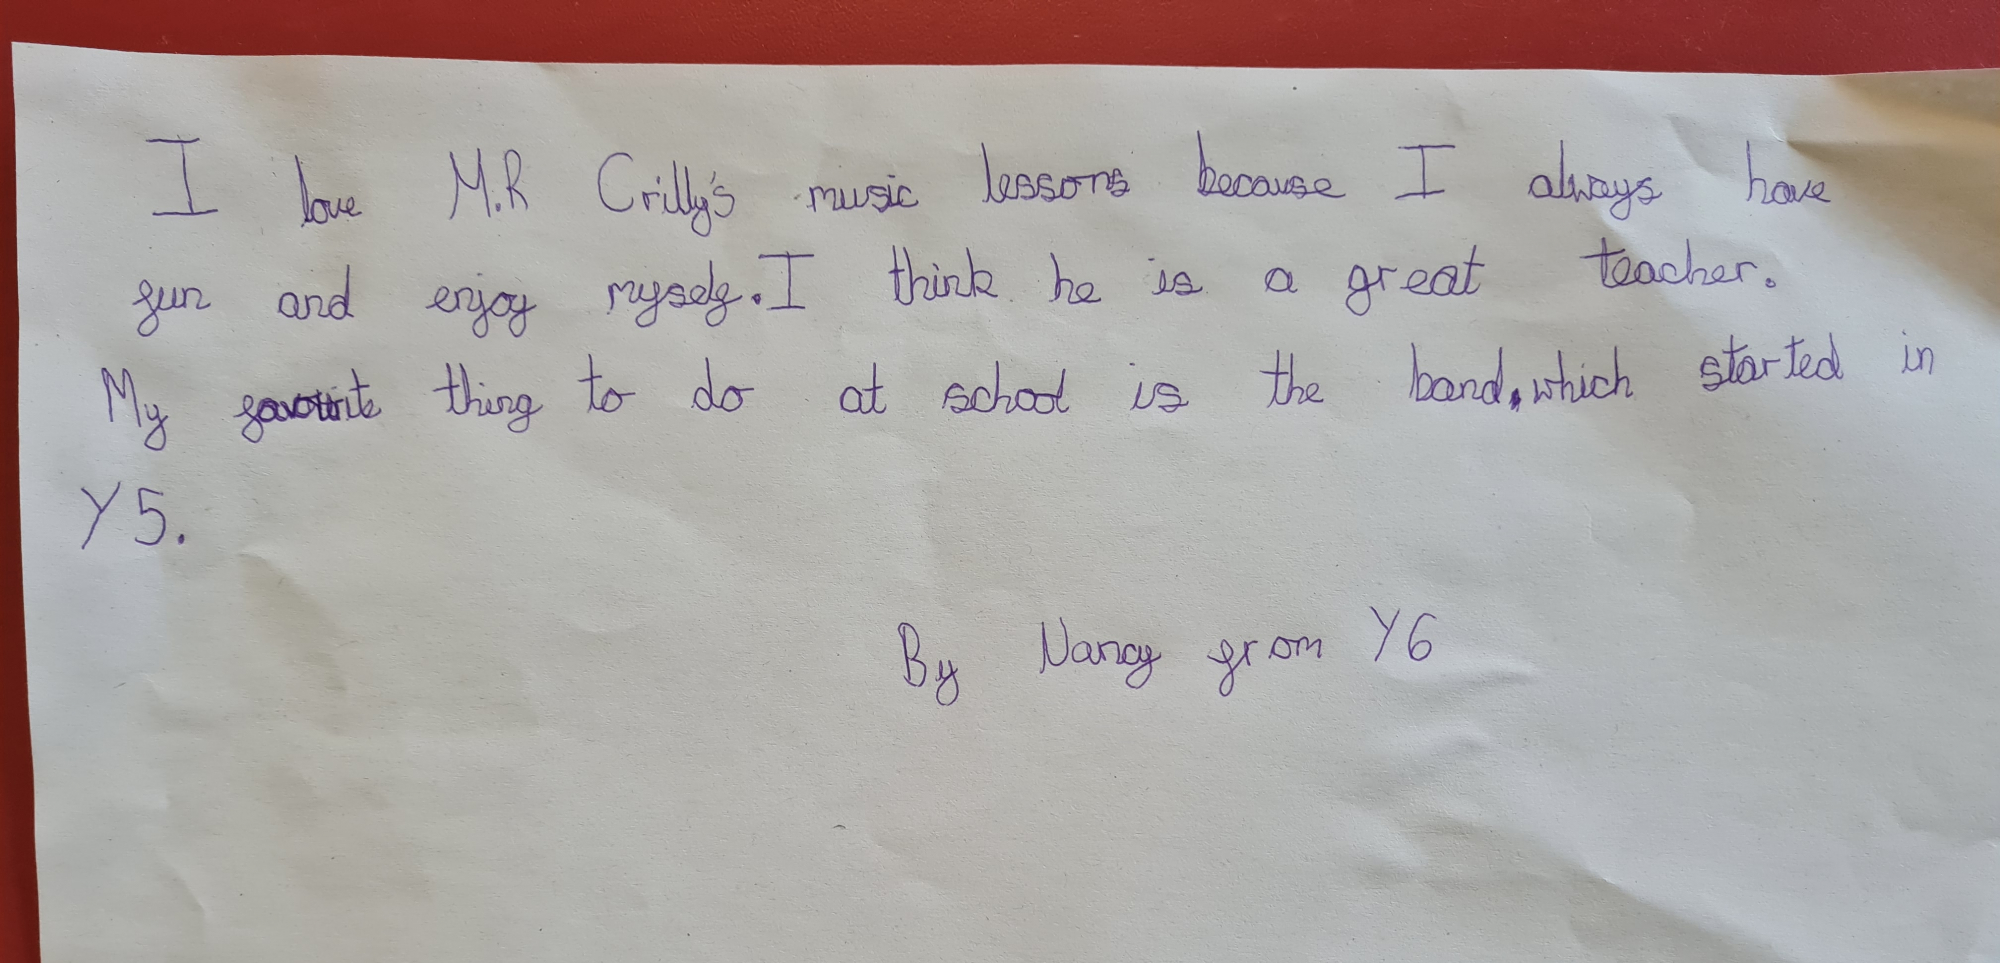 I love M.R Crilly's music lessons because I always have
fun and enjoy myself. I think he is a great teacher.
My favourite thing to do at school is the band, which started in
Y5.
By Nancy from Y6